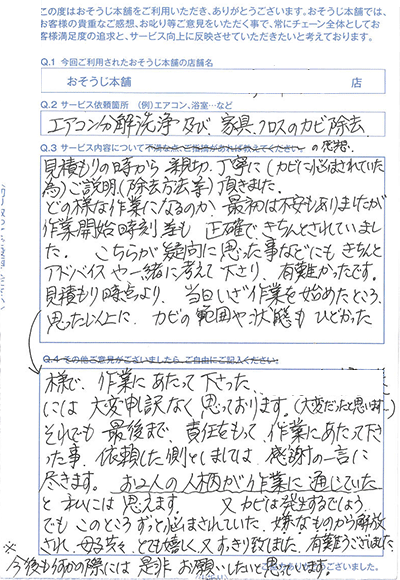 この度はおそうじ本舗をご利用いただき、ありがとうございます。おそうじ本舗では、
お客様の貴重なご感想、お叱り等ご意見をいただく事で、常にチェーン全体としてお
客様満足度の追求と、サービス向上に反映させていただきたいと考えております。
Q.1 今回ご利用されたおそうじ本舗の店舗名
おそうじ本舗 店
Q.2 サービス依頼箇所 (例)エアコン、浴室…など
エアコン分解洗浄及び、家具、クロスのカビ除去.
Q.3 サービス内容について不満な点、ご指摘があれば教えてください。の感想.
見積もりの時から親切、丁寧に(カビに悩まされていた
為)ご説明(除去方法等)頂きました.
どの様な作業になるのか、最初は不安もありましたが
作業開始時刻等も正確で、きちんとされていまし
た. こちらが疑問に思った事などにもきちんと
アドバイスや一緒に考えて下さり、有難かったです。
見積もり時点より、当日いざ作業を始めたところ、
思った以上に、カビの範囲や状態もひどかった
Q.4 その他ご意見がございましたら、ご自由にご記入ください。
様で、作業にあたって下さった、
には大変申訳なく思っております。(大変だったと思います…)
それでも最後まで、責任をもって、作業にあたって下さっ
た事、依頼した側としましては、感謝の一言に
尽きます。 お2人の人柄が作業に通じていた
と私には思えます. 又カビは発生するでしょう.
でもこのところずっと悩まされていた、嫌なものから解放
され、母共々、とても嬉しく又すっきり致しました. 有難うございました.
※今後も何かの際には是非お願いしたいと思います。